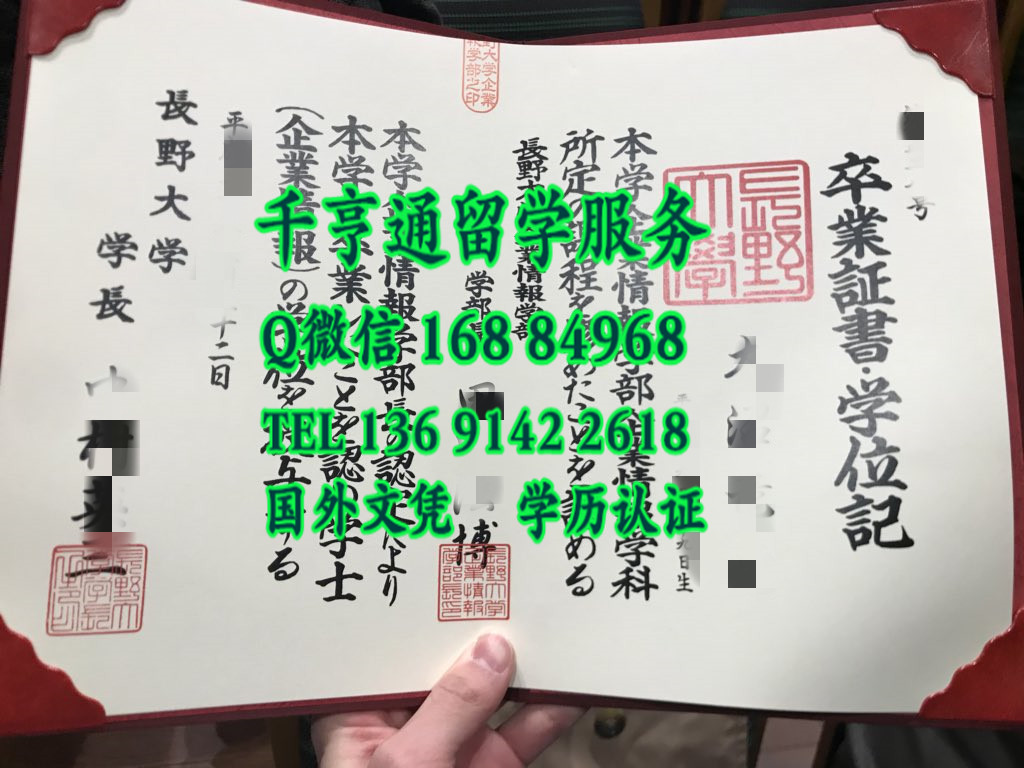 卒業証書・学位記
号
長野大學
九日生
本学企業情報学部企業情報学科
所定の課程を修めたことを認める
長野大学企業情報学部
学部長
田
博
本学企業情報学部長の認定により
本学を卒業したことを認め学士
(企業情報)の学位を授与する
平
十二日
長野大学
学長
千亨通留学服务
Q微信 168 84968
TEL 136 9142 2618
国外文凭 学历认证